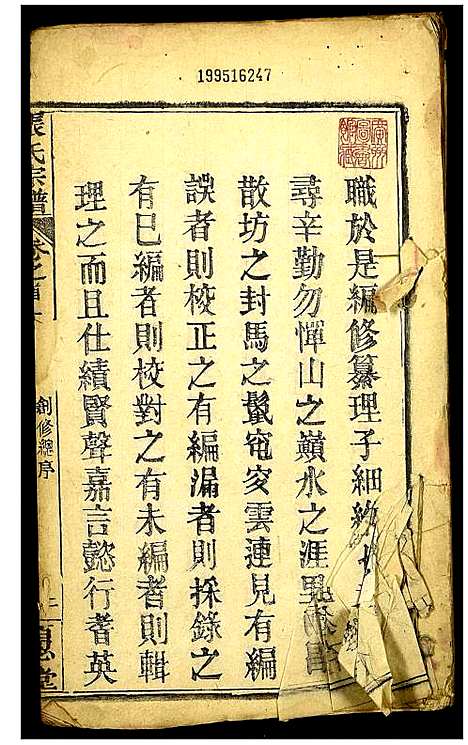 199516247
職於是編修纂理子細
尋辛勤勿憚山之巔水之涯
散坊之封馬之鬣窀穸雲連見有編
誤者則校正之有編漏者則採錄之
有已編者則校對之有未編者則輯
理之而且仕績賢聲嘉言懿行耆英
張氏宗譜
卷之首
創修總序
堂